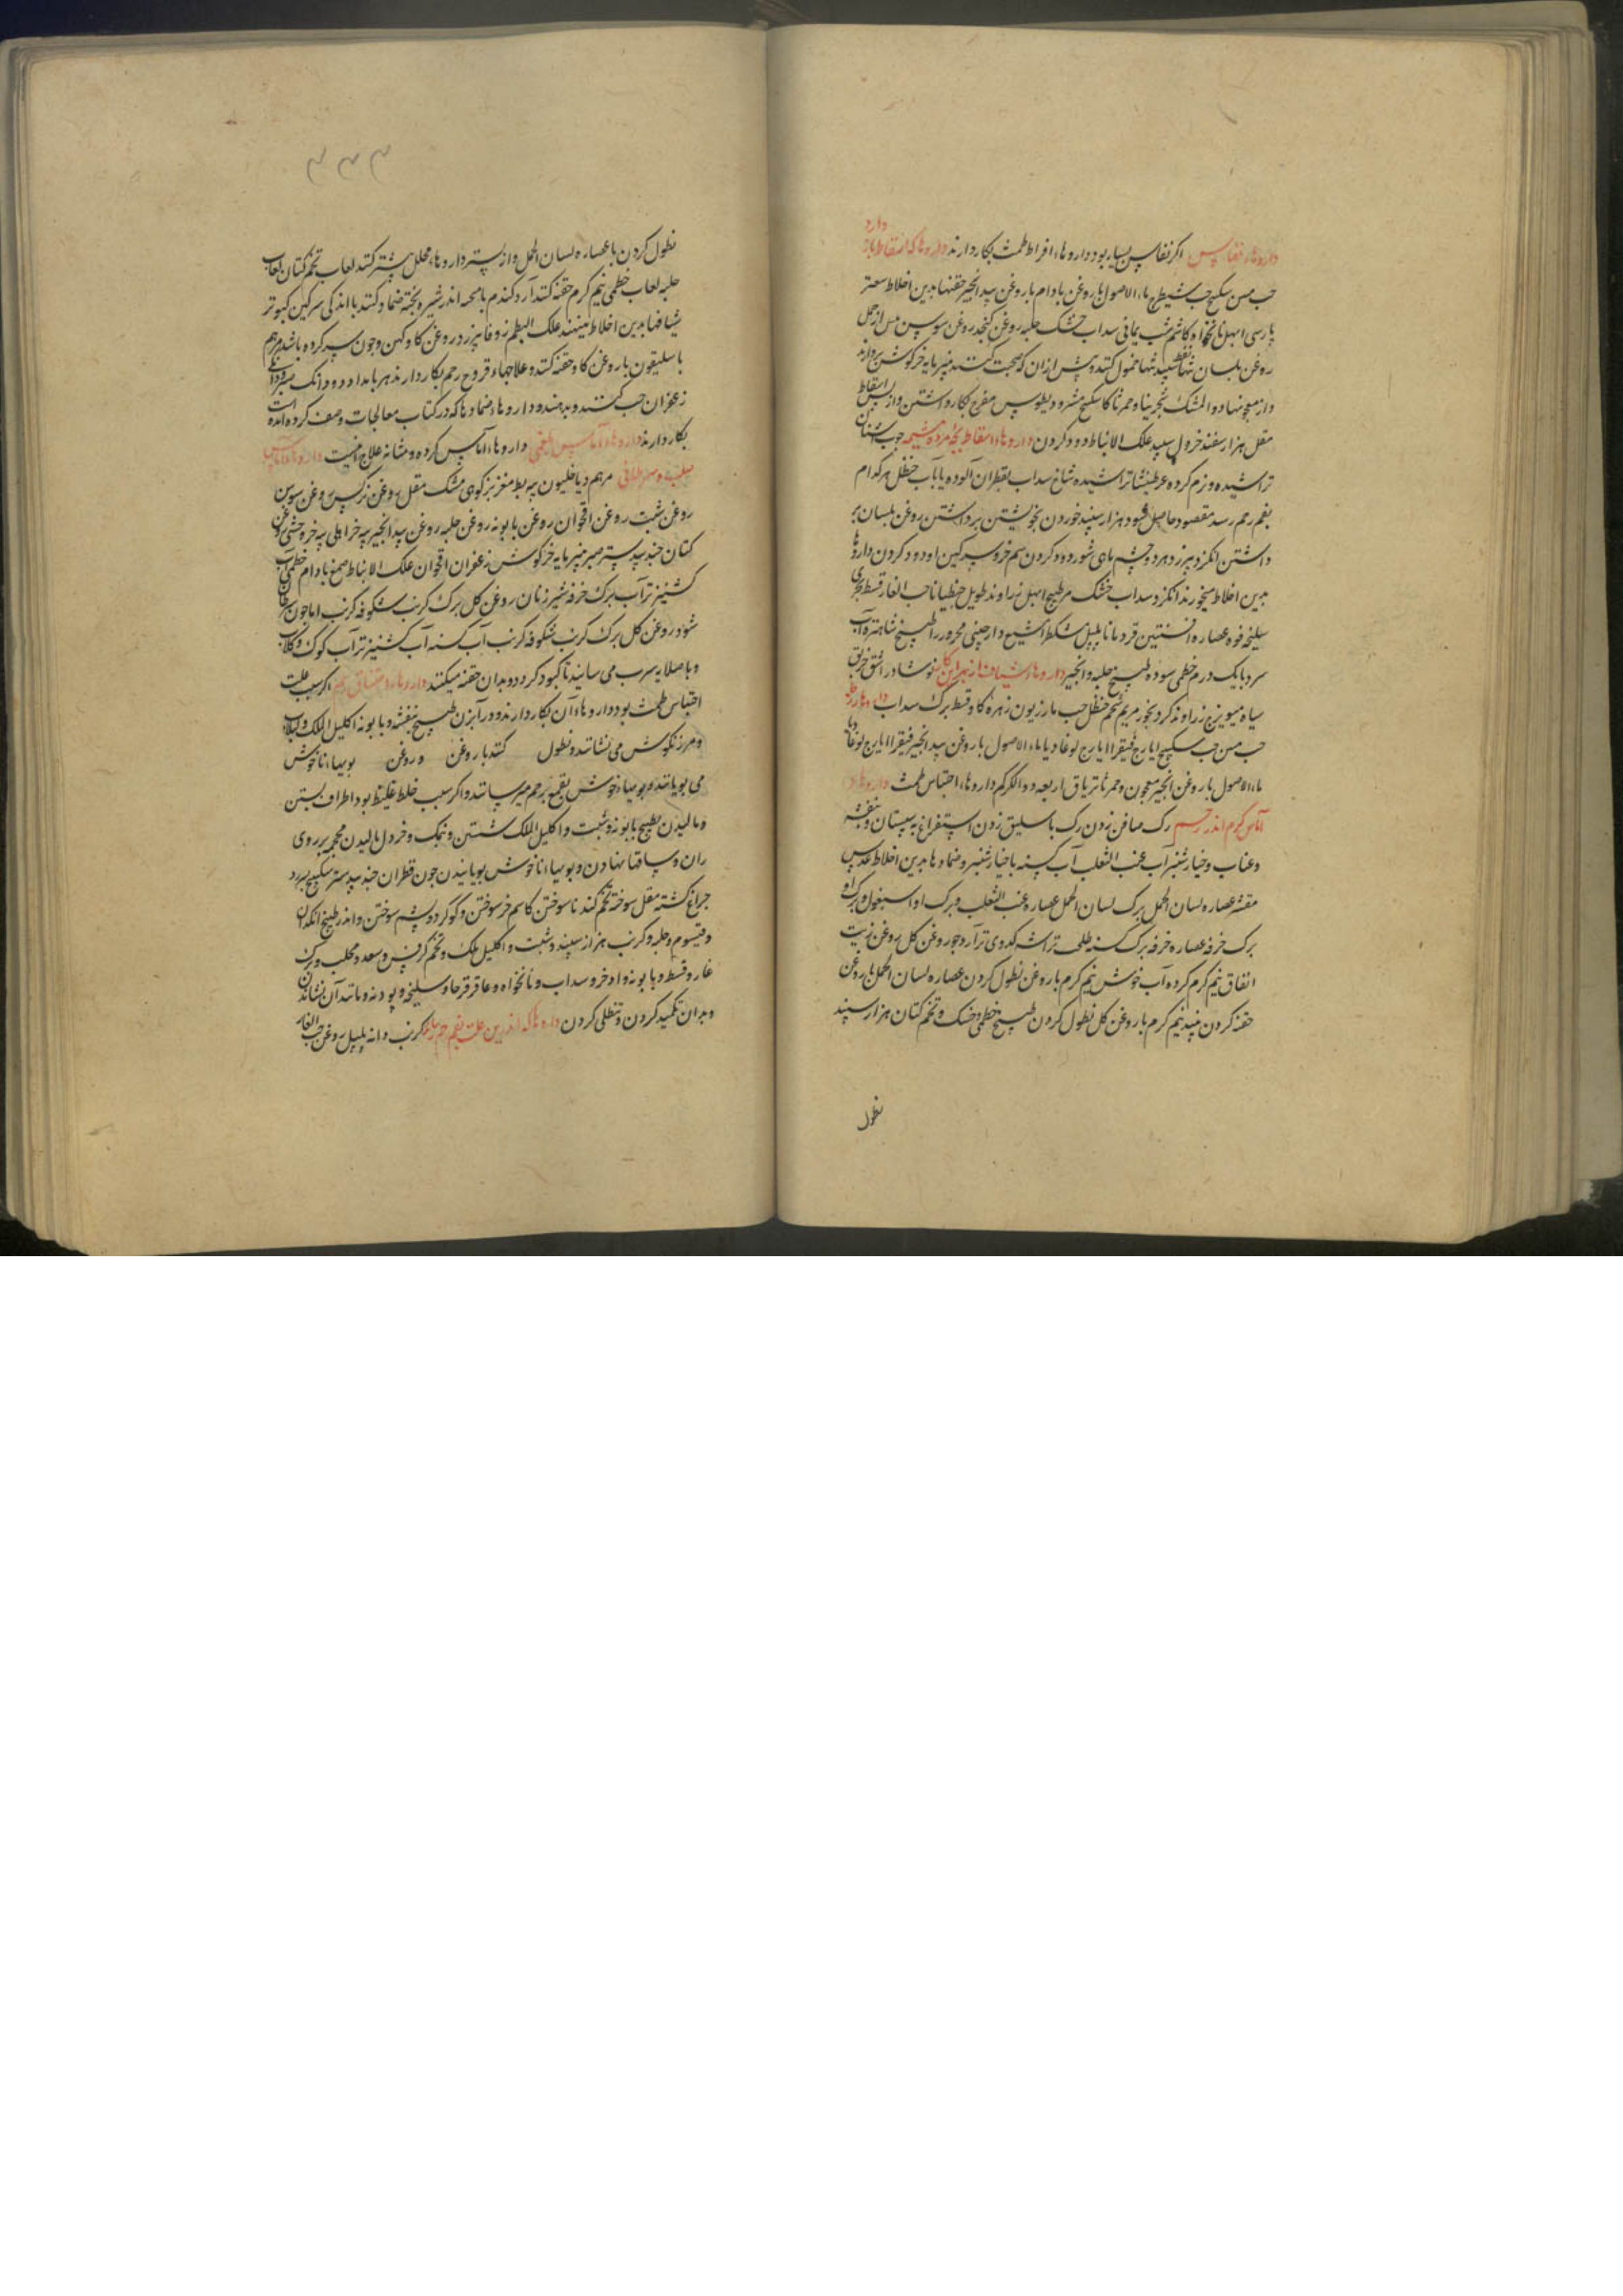 داروهاء نفاس اکر نفاس بسیار بود داروهاء افراط طمث بکار دارند داروها که اسقاط باز دارد
حب سکبینج حب شیطرج ماءالاصول با روغن بادام با روغن بید انجیر حقنها بدین اخلاط سعتر
پارسی ابهل نانخواه کاشم شب یمانی سداب خشک حلبه روغن کنجد روغن سوسن پس از حمل
روغن بلسان تنها نفط سپید تنها حمول کنند و پیش از ان که صحبت کنند پنیر مایه خرکوش بردارند
و از معجونها دواالمشک شجرینا و حمرنا کاسکبینج مثرودیطوس مفرح بکار داشتن و از پس اسقاط
مقل هزار سفند خردل سپید علک الانباط دود کردن داروهاء اسقاط بچه مرده و مشیمه چوب اشنان
تراشیده و نرم کرده عرطنیثا تراشیده شاخ سداب بقطران آلوده یا بآب حنظل هر کدام
بفم رحم رسد مقصود حاصل شود هزار سپند خوردن بخویشتن برداشتن روغن بلسان بر
داشتن انکزد بیرزد هر دو چشم ماهی شور دود کردن سم خر و سرکین او دود کردن داروها
بدین اخلاط میخورند انکزد سداب خشک مر طبیخ ابهل زراوند طویل جنطیانا حب الغار قسط بحری
سلیخه فوه عصاره افسنتین قردمانا پلپل مشکطرامشیع دارچینی محرور را طبیخ شاهتره آب
سرد با یک درم خطمی سوده طبیخ حلبه و انجیر داروها شیاف از بهر این کار نوشادر اشق خربق
سیاه میویزج زراوند کرد بخور مریم شحم حنظل حب مازریون زهره کاو قسط برک سداب
حب سکبینج ایارج فیقرا ایارج لوغاذیا ماءالاصول با روغن بید انجیر فیقرا ایارج لوغاذیا
ماءالاصول با روغن انجیر معجون و حمرنا تریاق اربعه دوالکرکم داروهاء احتباس طمث داروهاء
آماس کرم اندر رحم رک صافن زدن رک باسلیق زدن استفراغ به سپستان و بنفشه
و عناب و خیارشنبر آب عنب الثعلب آب کسنه با خیارشنبر و ضمادها بدین اخلاط عدس
مقشر عصاره لسان الحمل برک لسان الحمل عصاره عنب الثعلب و برک او اسبغول و برک او
برک خرفه عصاره خرفه برک کسنه طحلب تراشه کدوی تر آرد جو روغن کل روغن زیت
انفاق نیم کرم کرده آب خوش نیم کرم با روغن نطول کردن عصاره لسان الحمل با روغن
حقنه کردن نیم کرم با روغن کل نطول کردن طبیخ خطمی و خسک و تخم کتان هزار سپند
نطول
۳۳۳
نطول کردن با عصاره لسان الحمل و از پستر داروهاء محلل بیشتر کنند لعاب تخم کتان لعاب
حلبه لعاب خطمی نیم کرم حقنه کنند آرد کندم با محه اندر شیر پخته ضماد کنند با اندکی سرکین کبوتر
شیافها بدین اخلاط می نهند علک البطم زوفا بیرزد روغن کاو کهن و چون سر کرده باشد مرهم
باسلیقون با روغن کاو حقنه کنند و علاجهاء قروح رحم بکار دارند هر بامداد دو دانک صبر و دانکی
زعفران حب کنند و بدهند و داروها و ضمادها که در کتاب معالجات وصف کرده آمده است
بکار دارند داروهاء آماس بلغمی داروهاء آماس کرده و مثانه علاج اینست داروهاء آماس
صلب و سرطانی مرهم دیاخلیون پیه بط مغز بز کوهی مشک مقل روغن نرکس روغن سوسن
روغن شبت روغن اقحوان روغن بابونه روغن حلبه روغن بید انجیر پیه خر اهلی پیه خر وحشی روغن
کتان جندبیدستر صبر پنیر مایه خرکوش زعفران اقحوان علک الانباط صمغ بادام خطمی آب
کشنیز تر آب برک خرفه شیر زنان روغن کل برک کرنب شکوفه کرنب اما چون سرطان
شود روغن کل برک کرنب شکوفه کرنب آب کسنه آب کشنیز تر آب کوک و کلاب
و با صلایه سرب می سایند تا کبود کردد و بدان حقنه میکنند داروهاء اختناق رحم اکر سبب علت
احتباس طمث بود داروهاء آن بکار دارند و در آبزن طبیخ بنفشه و بابونه اکلیل الملک و
و مرزنکوش می نشانند و نطول کنند با روغن و روغن بویهاء ناخوش
می بویانند و بویهاء خوش بقمع برحم میرسانند و اکر سبب خلط غلیظ بود اطراف بستن
و مالیدن بطبیخ بابونه و شبت و اکلیل الملک شستن و نمک و خردل مالیدن محجمه بر روی
ران و ساقها نهادن و بویهاء ناخوش بویانیدن چون قطران جندبیدستر سکبینج بیرزد
چراغ کشته مقل سوخته تخم کندنا سوختن کاسم خر سوختن و کوکرد و پشم سوختن و اندر طبیخ انکدان
و قیسوم و حلبه و کرنب هزار سپند و شبت و اکلیل ملک و تخم کرفس و سعد و محلب و برک
غار و قسط و بابونه و اذخر و سداب و نانخواه و عاقرقرحا و سلیخه و پودنه و مانند آن نشاندن
و بدان تکمید کردن و تنطلی کردن داروها که اندرین علت بفم رحم کرنب دانه پلپل روغن حب الغار